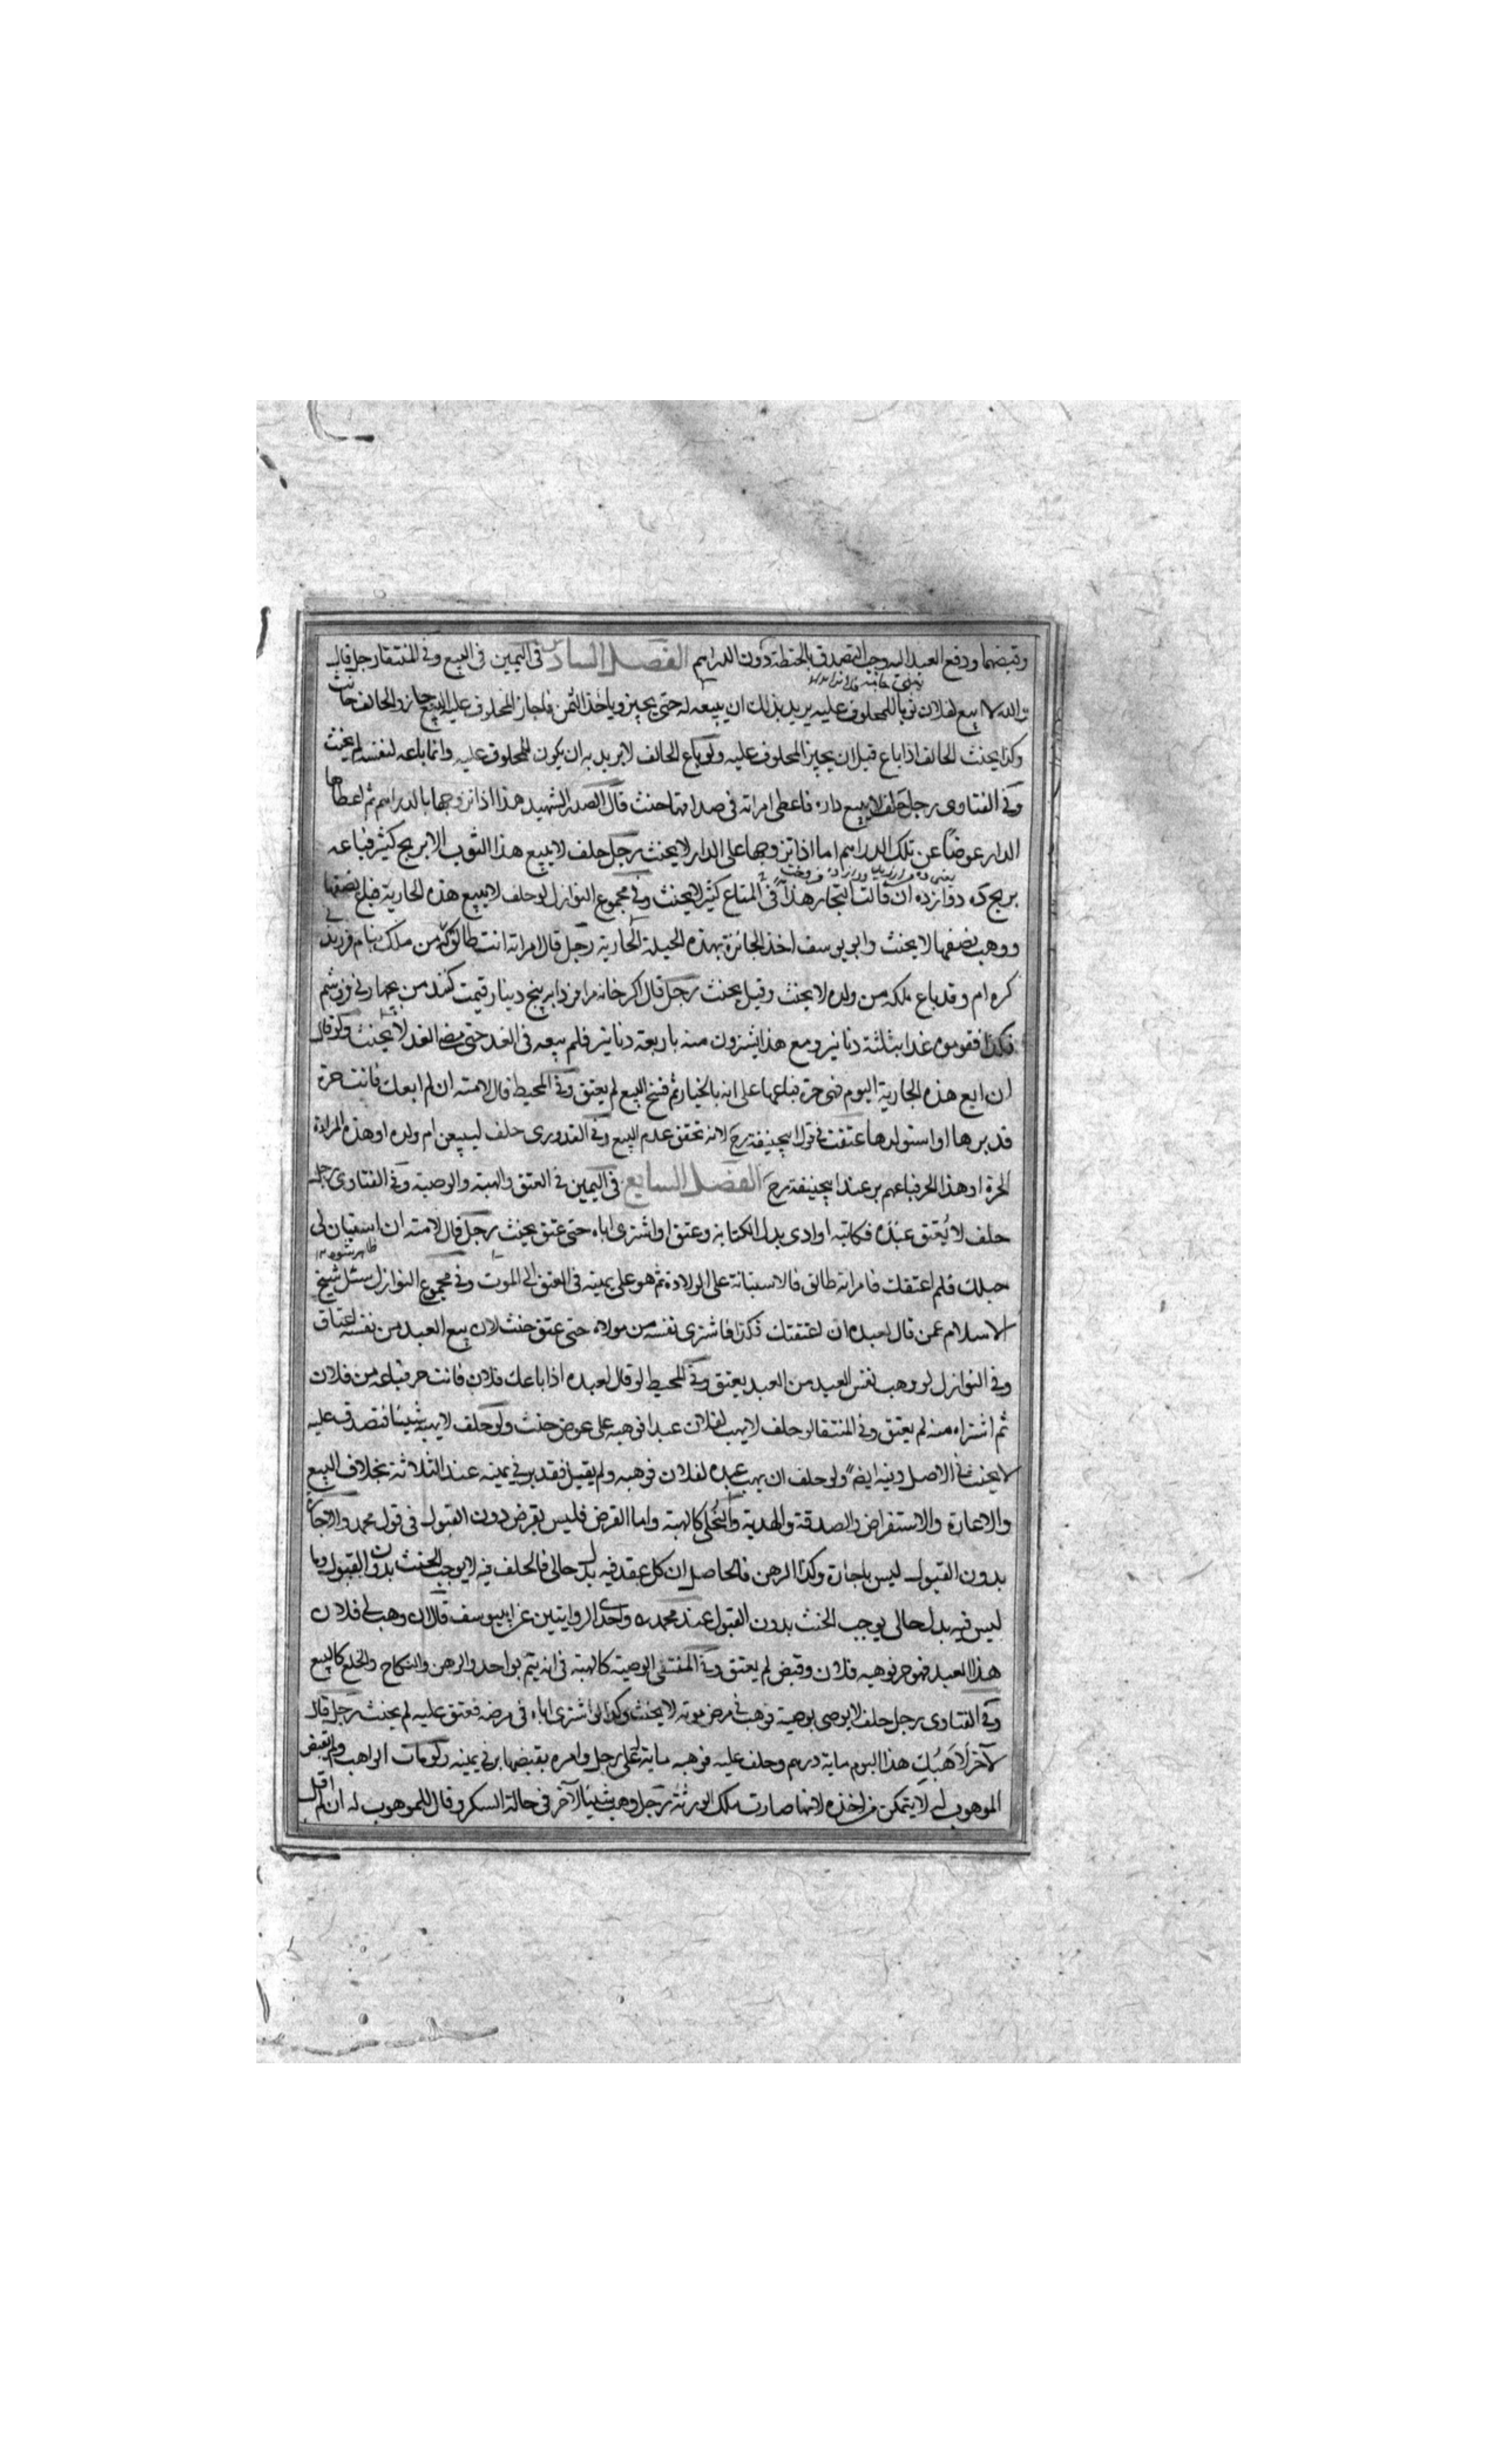 وقبضهما ودفع العبد اليه وجب التصدق بالحنطة دون الدراهم الفصل السادس في اليمين في البيع وفي المنتقا رجل قال
والله لا ابيع لفلان ثوبا للمحلوف عليه يريد بذلك ان يبيعه له حتى يجيز وياخذ الثمن فاجاز المحلوف عليه البيع جاز والحالف حانث
وكذا يحنث الحالف اذا باع قبل ان يجيز المحلوف عليه ولو باع الحالف لا يريد به ان يكون للمحلوف عليه وانما باعه لنفسه لم يحنث
وفي الفتاوى رجل حلف لا يبيع داره فاعطى امراته في صداقها حنث قال الصدر الشهيد هذا اذا تزوجها بالدراهم ثم اعطاها
الدار عوضا عن تلك الدراهم اما اذا تزوجها على الدار لا يحنث رجل حلف لا يبيع هذا الثوب الا بربح كثير فباعه
بربح ده دوازده ان قالت التجار هذا في المتاع كثير لا يحنث وفي مجموع النوازل لو حلف لا يبيع هذه الجارية فباع نصفها
ووهب نصفها لا يحنث وابو يوسف اخذ الجائزة بهذه الحيلة الجارية رجل قال لامراته انت طالق كه من ملك بنام فرزند
كره ام وقد باع ملكه من ولده لا يحنث وقيل يحنث رجل قال اكر خانه مرا فردا بر پنج دينار قيمت كنند من بچهار ني فروشم
فكذا فقوموه غدا بثلثة دنانير ومع هذا يشترون منه باربعة دنانير فلم يبعه في الغد حتى مضى الغد لا يحنث ولو قال
ان ابع هذه الجارية اليوم فهي حرة فباعها على انه بالخيار ثم فسخ البيع لم يعتق وفي المحيط قال لامته ان لم ابعك فانت حرة
فدبرها او استولدها عتقت في قول ابيحنيفة رح لانه تحقق عدم البيع وفي القدوري حلف ليبيعن ام ولده او هذه المراة
الحرة او هذا الحر فباعهم بر عند ابيحنيفة رح الفصل السابع في اليمين في العتق والهبة والوصية وفي الفتاوى رجل
حلف لا يعتق عبده فكاتبه او ادى بدل الكتابة وعتق او اشترى اباه حتى عتق يحنث رجل قال لامته ان استبان لي
حبلك فلم اعتقك فامراته طالق فالاستبانة على الولادة ثم هو على يمينه في العتق الى الموت وفي مجموع النوازل سئل شيخ
الاسلام عمن قال لعبده ان اعتقتك فكذا فاشترى نفسه من مولاه حتى عتق حنث لان بيع العبد من نفسه اعتاق
وفي النوازل لو وهب نفس العبد من العبد يعتق وفي المحيط لو قال لعبده اذا باعك فلان فانت حر فباعه من فلان
ثم اشتراه منه لم يعتق وفي المنتقا لو حلف لا يهب لفلان عبدا فوهبه على عوض حنث ولو حلف لا يهب شيئا فتصدق عليه
لا يحنث في الاصل وفيه ايضا ولو حلف ان يهب عبده لفلان فوهبه ولم يقبل فقد بر في يمينه عند الثلاثة بخلاف البيع
والاعارة والاستقراض والصدقة والهدية والنحلى كالهبة واما القرض فليس بقرض دون القبول في قول محمد والاجارة
بدون القبول ليس باجارة وكذا الرهن فالحاصل ان كل عقد فيه بدل حالي فالحلف فيه لا يوجب الحنث بدون القبول وما
ليس فيه بدل حالي يوجب الحنث بدون القبول عند محمد واحدى الروايتين عن ابي يوسف قال ان وهب لي فلان
هذا العبد فهو حر فوهبه فلان وقبض لم يعتق وفي المنتقى الوصية كالهبة في انه يتم بواحد والرهن والنكاح والخلع كالبيع
وفي الفتاوى رجل حلف لا يوصي بوصية فوهب في مرض موته لا يحنث وكذا لو اشترى اباه في مرضه فعتق عليه لم يحنث رجل قال
لآخر لاهبك هذا اليوم ماية درهم وحلف عليه فوهبه ماية له على رجل وامره بقبضها بر في يمينه ولو مات الواهب ولم يقبض
الموهوب له لا يتمكن من اخذه لانها صارت ملك الورثة رجل وهب شيئا لآخر في حالة السكر وقال للموهوب له ان لم اقل